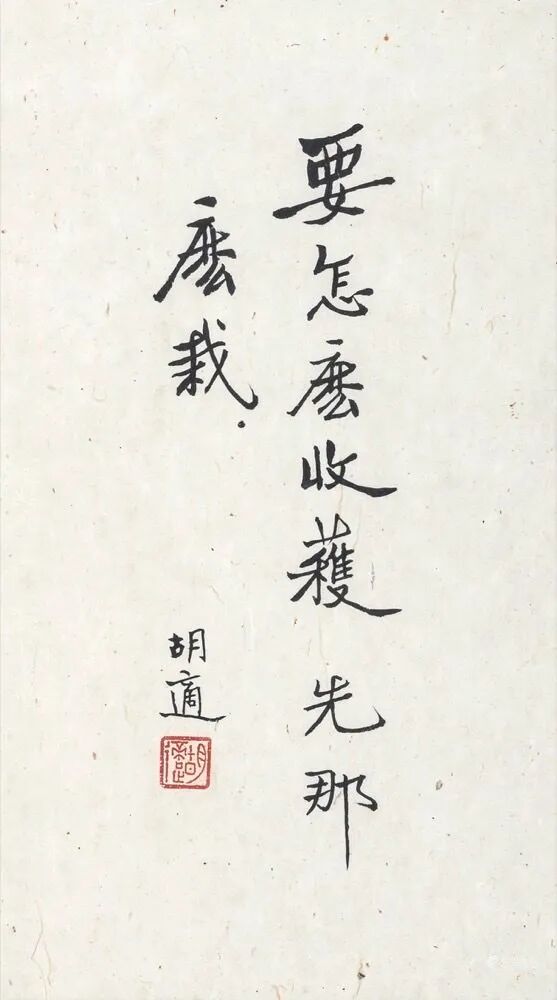 要怎麽收穫先那
麽栽.
胡適
胡適